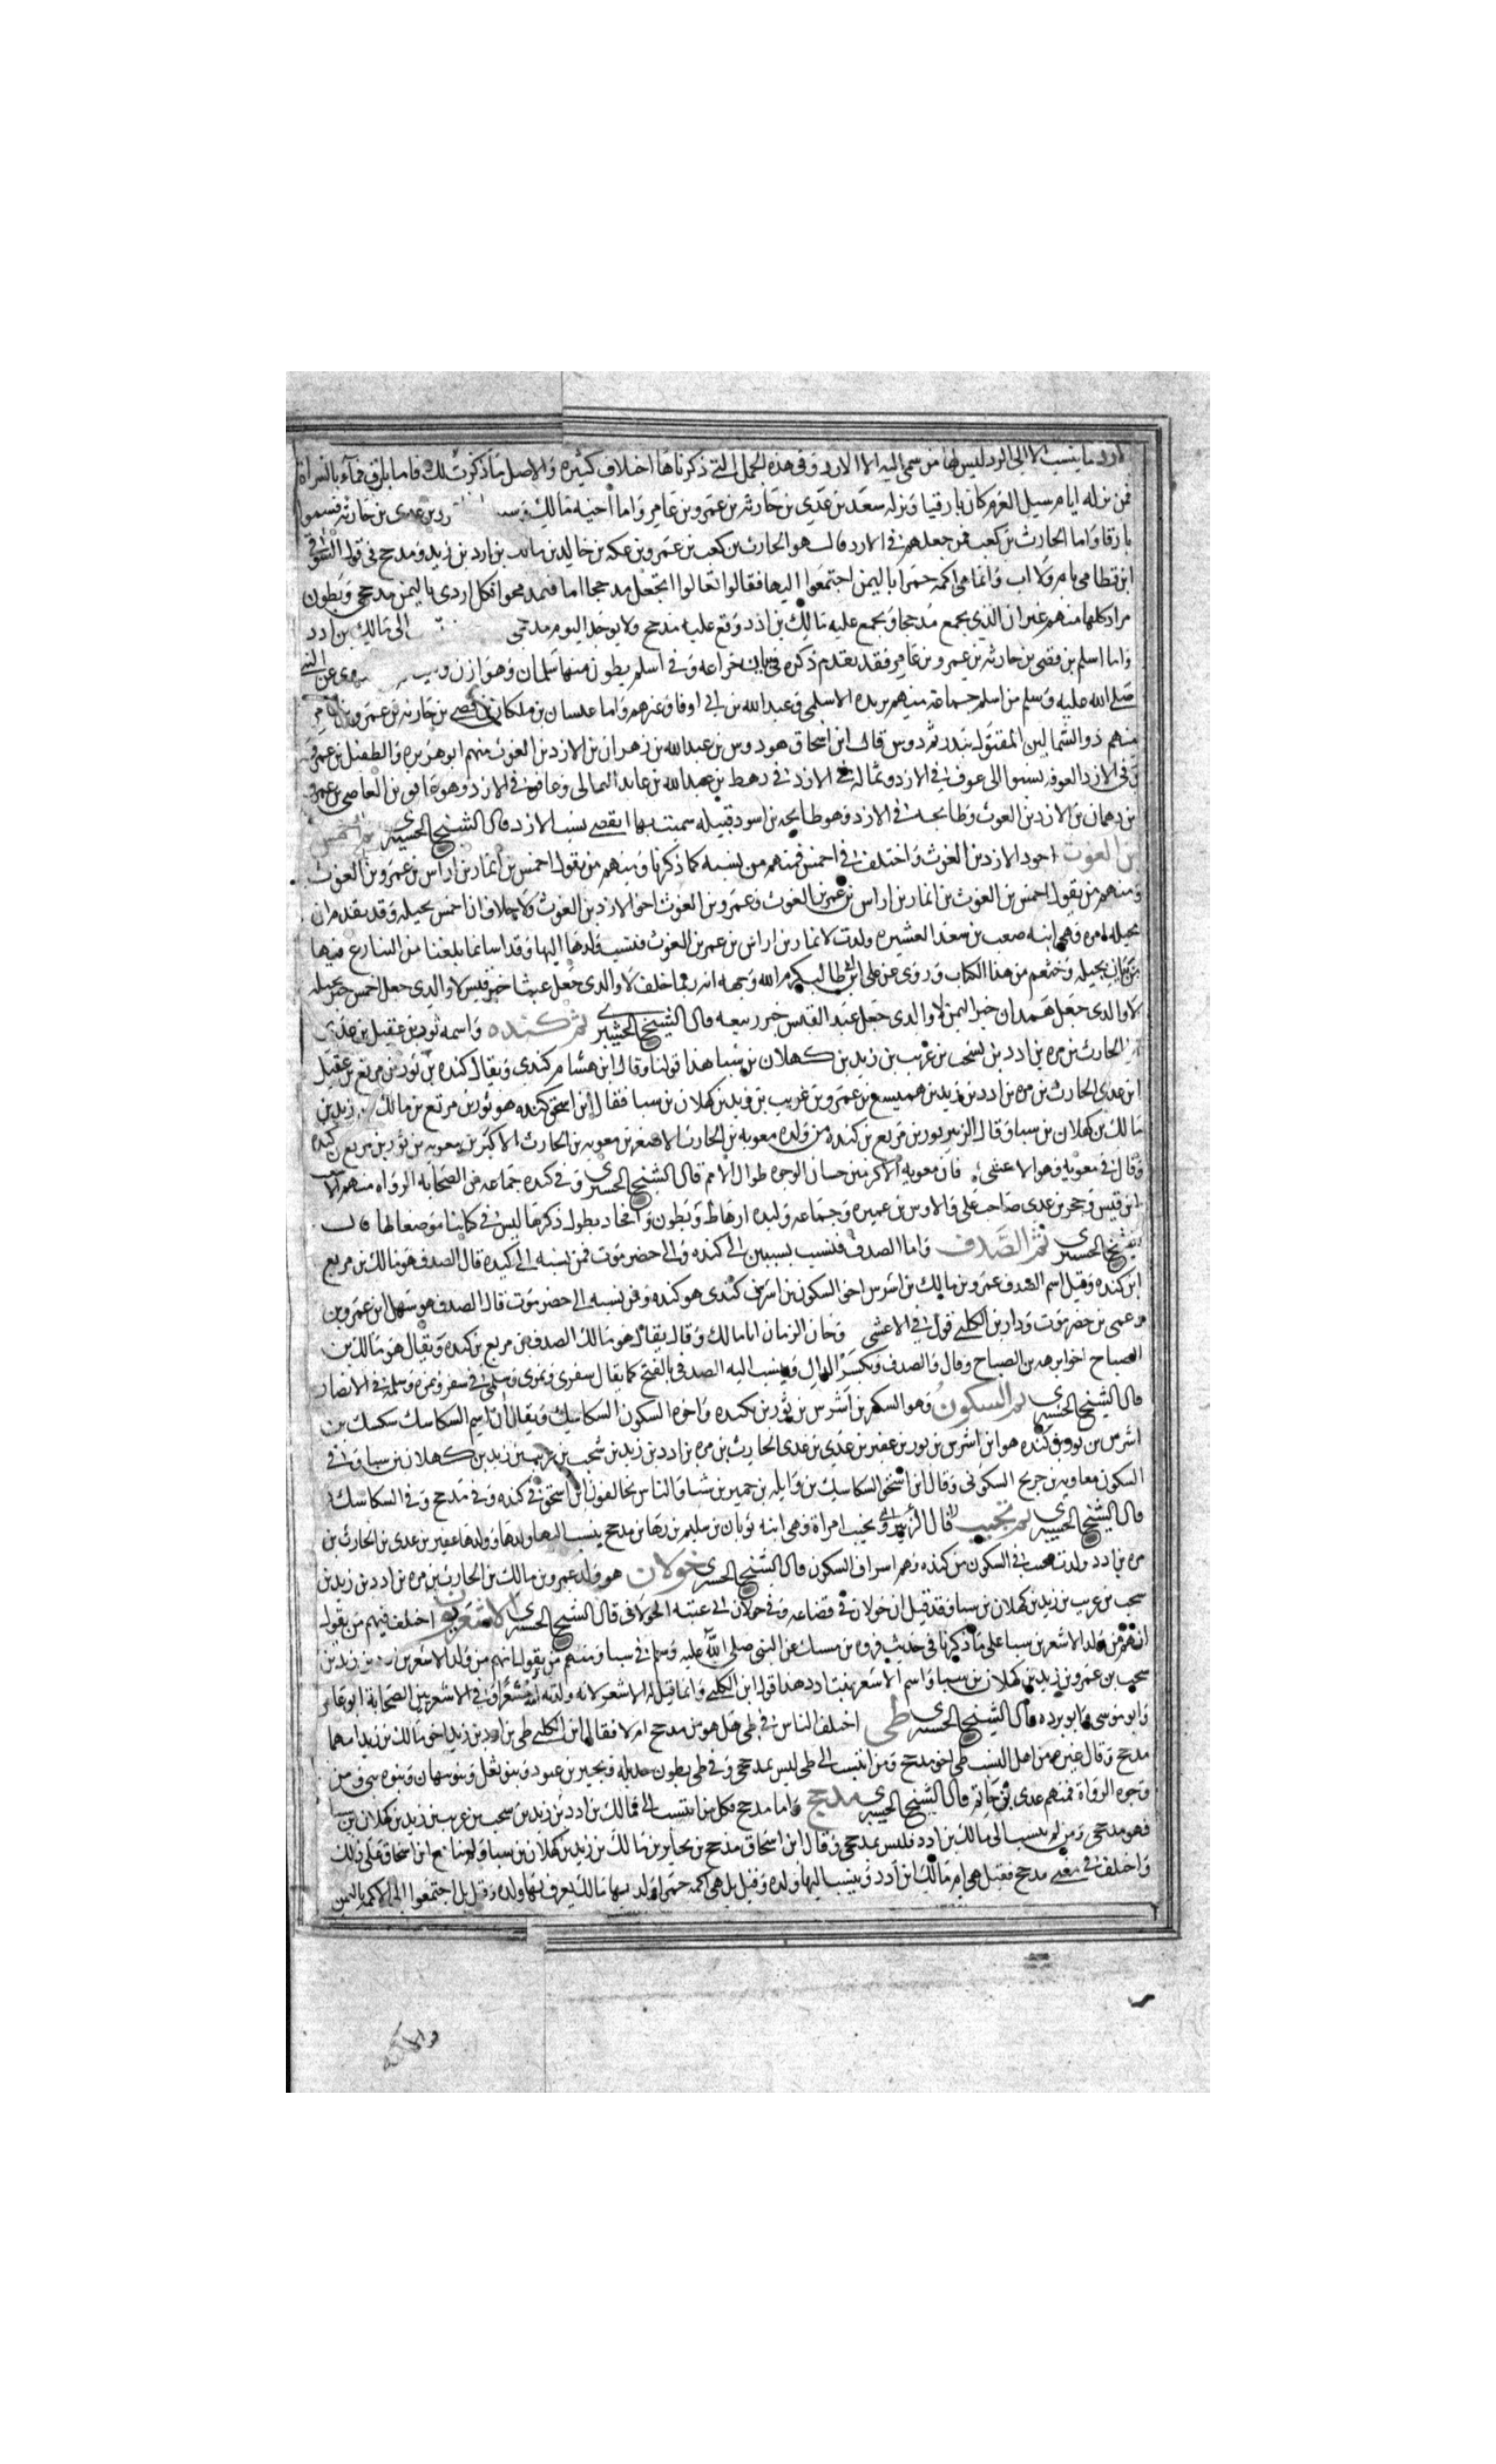 الازد ما ينسب الا الى الازد ليس لها من سمي اليه الا الازد وفي هذه الجمل التي ذكرناها اختلاف كثيره والاصل ما ذكرت لك فاما بارق فمآء بالسراة
فمن نزله ايام سيل العرم كان بارقيا ونزله سعد بن عدي بن حارثه بن عمرو بن عامر واما اخيه مالك بن عدي بن حارثه فسموا
بارقا واما الحارث بن كعب فمن جعلهم في الازد قال هو الحارث بن كعب بن عمرو بن عكه بن خالد بن مالك بن ادد بن زيد ومدحج في قول
ابن قطامي بام ولا اب وانما هي اكمه حمرا باليمن اجتمعوا اليها فقالوا تعالوا نجعل مدحجا اما فكل ازدي باليمن مدحجي وبطون
مراد كلها منهم غير ان الذي يجمع مدحجا ويجمع عليه مالك بن ادد وقع عليه مدحج ولا يوجد اليوم مدحجي الى مالك بن ادد
واما اسلم بن فصى بن حارثه بن عمرو بن عامر فقد تقدم ذكره في باب خزاعه وفي اسلم بطون منها سلمان وهوازن روى عن النبي
صلى الله عليه وسلم من اسلم جماعة منهم بريده الاسلمي وعبد الله بن ابي اوفا وغيرهم واما بن ملكان بن افصى بن حارثه بن عمرو بن عامر
منهم ذو الشمالين المقتول ببدر ثم دوس قال ابن اسحاق هو دوس بن عبد الله بن زهران بن الازد بن الغوث منهم ابو هريره والطفيل بن عمرو
وفي الازد العوفه ينسبوا الى عوف في الازد وثماله في الازد في رهط بن عبد الله بن عايد الثمالي وغافق في الازد وهو غافق بن العاصي بن عمرو
بن دهمان بن الازد بن الغوث وطابخه في الازد وهو طابخه بن اسود قبيله سميت بها انقصى نسب الازد قال الشيخ الحسيبري ثم احمس
بن الغوث اخو الازد بن الغوث واختلف في احمس فمنهم من نسبه كما ذكرنا ومنهم من يقول احمس بن انمار بن اراس بن عمرو بن الغوث
ومنهم من يقول احمس بن الغوث بن انمار بن اراس بن عمر بن الغوث وعمرو بن الغوث اخو الازد بن الغوث ولا خلاف ان احمس بجيله وقد تقدم ان
بجيله امره وهي ابنه صعب بن سعد العشيره ولدت لانمار بن اراس بن عمر بن الغوث فنسب ولدها اليها وقد اسانا بلغنا من التنازع فيها
بن باب بجيله وخثعم من هذا الكتاب وروي عن علي ابن ابي طالب كرم الله وجهه انه ربما خلف لا والذي جعل عبسا خير قيس لا والذي جعل احمس خير بجيله
لا والذي جعل همدان خير اليمن لا والذي جعل عبد القيس خير ربيعه قال الشيخ الحسيبري ثم كنده واسمه ثور بن عقيل بن عدي
الحارث بن مره بن ادد بن يشحب بن عريب بن زيد بن كهلان بن سبا هذا قولنا وقال ابن هشام كندي ويقال كنده بن ثور بن مربع بن عقيل
ابن عدي الحارث بن مره بن ادد بن زيد بن هميسع بن عمرو بن غريب بن زيد بن كهلان بن سبا فقال ابن اسحق كنده هو ثور بن مرتع بن مالك بن زيد بن
مالك بن كهلان بن سبا وقال الزبير ثور بن مربع بن كنده من ولده معويه بن الحارث الاصغر بن معويه بن الحارث الاكبر بن معويه بن ثور بن مربع بن كنده
وقال في معويه وهو الاعشي فان معويه الاكرمين حسان الوجوه طوال الامم قال الشيخ الحسيبري وفي كنده جماعه من الصحابه الرواه منهم الاشعث
ابن قيس وحجر بن عدي صاحب علي والاوس بن عميره وجماعه ولبده ارهاط وبطون وافخاد يطول ذكرها ليس في كتابنا موضعا لها قال
الشيخ الحسيبري ثم الصدف واما الصدف فنسب بسببين الى كنده والى حضرموت فمن نسبه الى كنده قال الصدف هو مالك بن مربع
ابن كنده وقيل اسم الصدف عمرو بن مالك بن اشرس اخي السكون بن اشرس كندي هو كنده ومن نسبه الى حضرموت قال الصدف هو سهل ابن عمرو بن
دعمى بن حضرموت ودار بن الكلبي قول في الاعشى وخان الزمان ابا مالك وقال يقال هو مالك الصدف بن مربع بن كنده ويقال هو مالك بن
الصباح اخو ابرهه بن الصباح وقال والصدف وبكسر الدال وينسب اليه الصدفي بالفتح كما يقال سفري ونمري وسلمي في سفر ونمره وسلمه في الانصار
قال الشيخ الحسيبري ثم السكون وهو السكن بن اشرس بن ثور بن كنده واخوه السكون السكاسيك ويقال ان اسم السكاسك سكسك بن
اشرس بن ثور وقيل كنده هو ابن اشرس بن ثور بن عفير بن عدي بن عدي الحارث بن مره بن ادد بن زيد بن شحب بن غريب بن زيد بن كهلان بن سبا وفي
السكون معاويه بن جريح السكوني وقال ابن اسحق السكاسيك بن وايله بن حمير بن سبا والناس يخالفون ابن اسحق في كنده وفي مدحج وفي السكاسك
قال الشيخ الحسيبري ثم تجيب قال الزبيري وتجيب امراة وهي ابنه ثوبان بن سليم بن رها بن مدحج ينسب اليها ولدها وولدها عفير بن عدي بن الحارث بن
مره بن ادد ولدت في السكون من كنده وهم اسراف السكون قال الشيخ الحسيبري خولان هو ولد عمرو بن مالك بن الحارث بن مره بن ادد بن زيد بن
سحب بن عريب بن زيد بن كهلان بن سبا وقد قيل ان خولان في قضاعه وفي خولان ابي عنبه الخولاني قال الشيخ الحسيبري الاشعريون اختلف فيهم من يقول
انهم من ولد الاشعر بن سبا على ما ذكرنا في حديث فروه بن مسيك عن النبي صلى الله عليه وسلم في سبا ومنهم من يقول انهم من ولد الاشعر بن ادد بن زيد بن
سحب بن عمرو بن زيد بن كهلان بن سبا واسم الاشعر نبت بن ادد هذا قول ابن الكلبي وانما قيل له الاشعر لانه ولدته امه مشعرا وفي الاشعريين الصحابة ابو عامر
وابو موسى وابو برده قال الشيخ الحسيبري طي اختلف الناس في طي هل هو من مدحج ام لا فقال ابن الكلبي طي بن ادد بن زيد اخو مالك بن زيد امهما
مدحج وقال غيره من اهل النسب طي اخو مدحج ومن انتسب الى طي ليس بمدحجي وفي طي بطون جديله وبحير بن عبود وبنو ثعل وبنو نبهان وبنوه بني ومن
وجوه الرواة فمنهم عدي بن حاتم قال الشيخ الحسيبري مدحج واما مدحج فكل من انتسب الى مالك بن ادد بن زيد بن سحب بن عريب بن زيد بن كهلان بن سبا
فهو مدحجي ومن لم ينسب الى مالك بن ادد فليس بمدحجي وقال ابن اسحاق مدحج بن يحابر بن مالك بن زيد بن كهلان بن سبا ولم يتابع ابن اسحاق على ذلك
واختلف في معنى مدحج فقيل هي ام مالك ابن ادد وينسب اليها ولده وقيل بل هي اكمه حمرا ولد بها مالك يعرف بها ولده وقيل بل اجتمعوا الى الاكمه باليمن
والاكمه